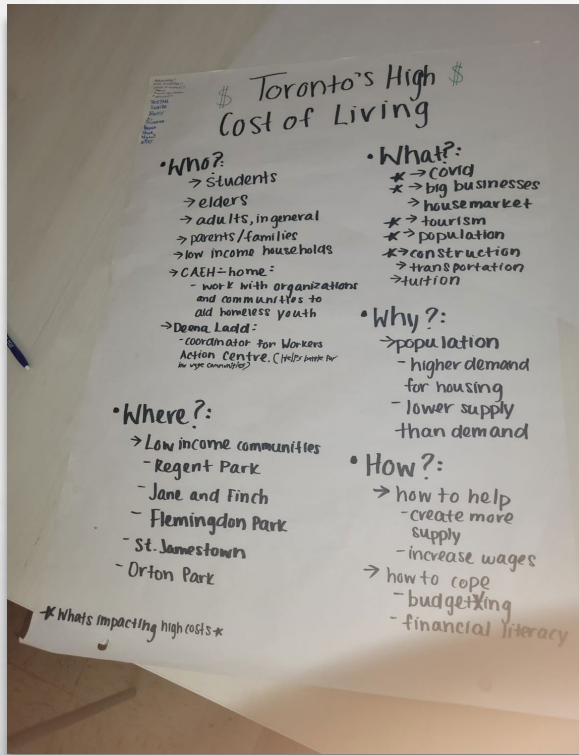 $ Toronto's High $
Cost of Living
• Who?:
→ students
→ elders
→ adults, in general
→ parents/families
→ low income households
→ CAEH-home:
- work with organizations
and communities to
aid homeless youth
→ Deena Ladd:
- coordinator for Workers
Action Centre. (Helps battle for
low wage communities)
• Where?:
→ Low income communities
- Regent Park
- Jane and Finch
- Flemingdon Park
- St. Jamestown
- Orton Park
* Whats impacting high costs *
• What?:
* → covid
* → big businesses
→ housemarket
* → tourism
* → population
* → construction
→ transportation
→ tuition
• Why?:
→ population
- higher demand
for housing
- lower supply
than demand
• How?:
→ how to help
- create more
supply
- increase wages
→ how to cope
- budgeting
- financial literacy